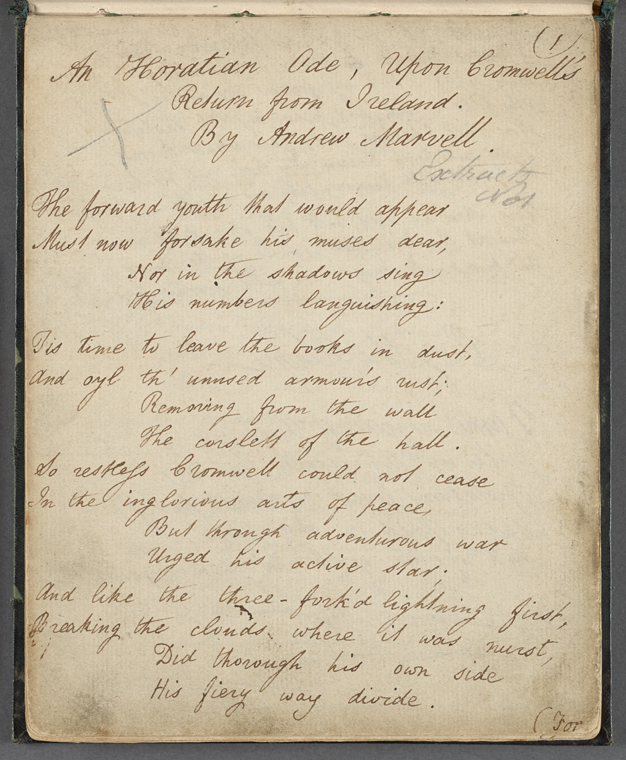 (1)
An Horatian Ode, Upon Cromwell's
Return from Ireland.
By Andrew Marvell.
Extracts
The forward youth that would appear
Must now forsake his muses dear,
Nor in the shadows sing
His numbers languishing:
Tis time to leave the books in dust,
And oyl th' unused armour's rust;
Removing from the wall
The corslett of the hall.
So restless Cromwell could not cease
In the inglorious arts of peace,
But through adventurous war
Urged his active star;
And like the three-fork'd lightning first,
Breaking the clouds where it was nurst,
Did thorough his own side
His fiery way divide.
(For